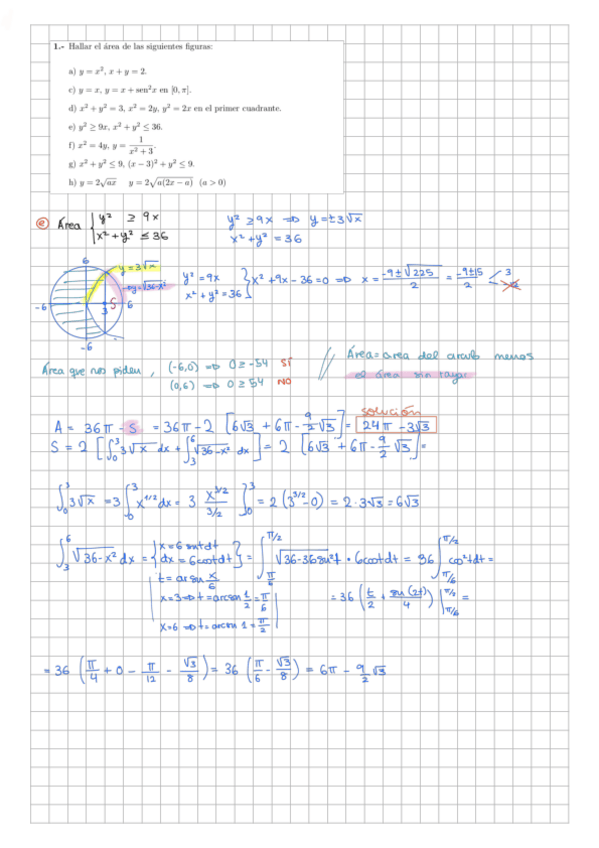 1.- Hallar el área de las siguientes figuras:
a) y = x², x + y = 2.
c) y = x, y = x + sen²x en [0, π].
d) x² + y² = 3, x² = 2y, y² = 2x en el primer cuadrante.
e) y² ≥ 9x, x² + y² ≤ 36.
f) x² = 4y, y = 1/(x² + 3).
g) x² + y² ≤ 9, (x − 3)² + y² ≤ 9.
h) y = 2√ax y = 2√a(2x − a) (a > 0)
e Área { y² ≥ 9x
x² + y² ≤ 36
y² ≥ 9x ⇒ y = ±3√x
x² + y² = 36
6
y = 3√x
y = √36-x²
-6 3 S 6
-6
y² = 9x
x² + y² = 36 } x² + 9x - 36 = 0 ⇒ x = (-9 ± √225)/2 = (-9 ± 15)/2 < 3
-12
Área que nos piden, (-6,0) ⇒ 0 ≥ -54 SÍ
(0,6) ⇒ 0 ≥ 54 NO
// Área = área del círculo menos
el área sin rayar
solución
A = 36π - S = 36π - 2 [6√3 + 6π - 9/2 √3] = 24π - 3√3
S = 2 [∫₀³ 3√x dx + ∫₃⁶ √36-x² dx] = 2 [6√3 + 6π - 9/2 √3] =
∫₀³ 3√x = 3 ∫₀³ x^1/2 dx = 3 x^3/2 / 3/2 ]₀³ = 2 (3^3/2 - 0) = 2 · 3√3 = 6√3
∫₃⁶ √36-x² dx = { x = 6 sint dt
dx = 6 cost dt } = ∫_π/6^π/2 √36-36sen²t · 6cost dt = 36 ∫_π/6^π/2 cos²t dt =
t = arsen x/6
x = 3 ⇒ t = arcsen 1/2 = π/6
x = 6 ⇒ t = arcsen 1 = π/2
= 36 (t/2 + sen(2t)/4) |_π/6^π/2 =
= 36 (π/4 + 0 - π/12 - √3/8) = 36 (π/6 - √3/8) = 6π - 9/2 √3